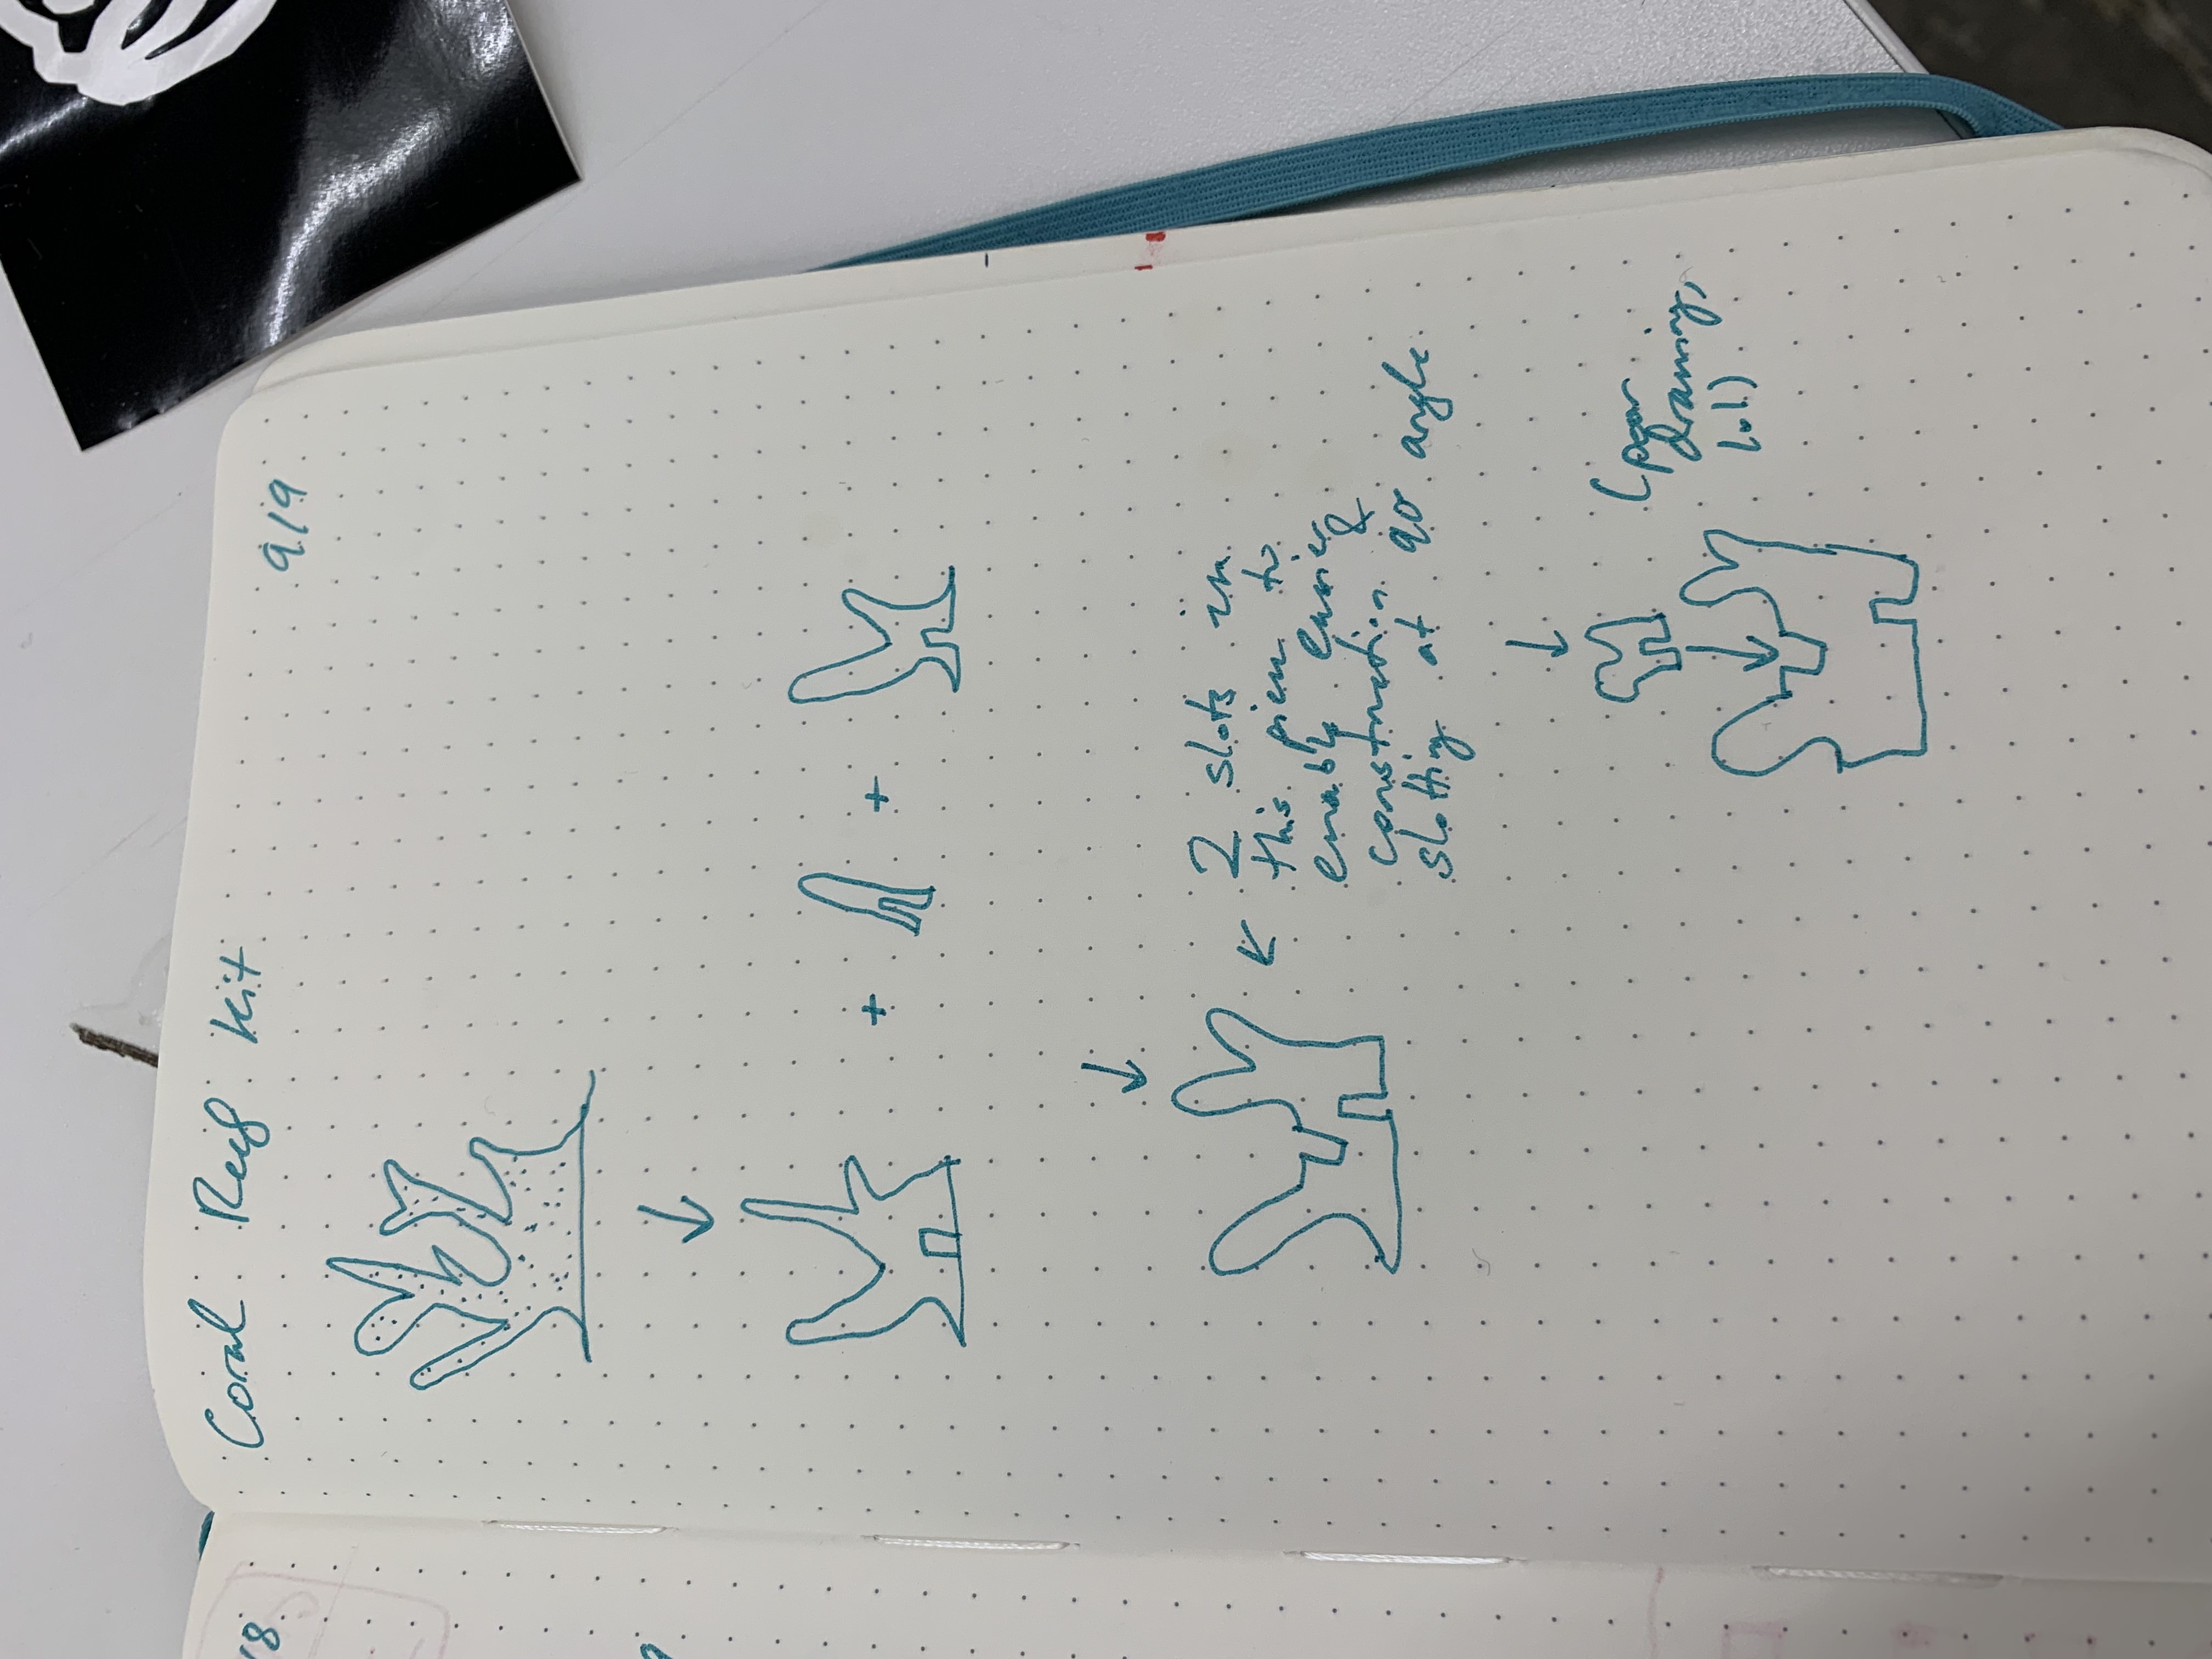 /8
Coral Reef Kit
9/9
+ +
2 slots in
this piece to
enable easier
construction &
slotting at 90° angle
(poor
drawing,
lol)